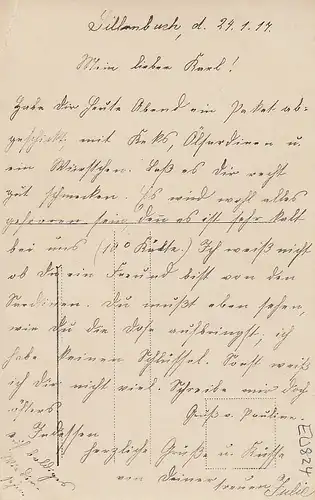 Dillenbuch, d. 24.1.17.
Mein lieber Karl!
Habe Dir heute Abend ein Paket ab-
geschickt mit Keks, Ölsardinen u.
ein Würstchen. Laß es Dir recht
gut schmecken. Es wird wohl alles
gefroren sein, denn es ist sehr kalt
bei uns (18° Kälte.) Ich weiß nicht
ob Du ein Freund bist von den
Sardinen. Du mußt eben sehen,
wie Du die Dose aufbringst, ich
habe keinen Schlüssel. Sonst weiß
ich Dir nicht viel. Schreibe mir doch
öfters
Gruß v. Pauline.
Indessen
herzliche Grüße u. Küsse
von Deiner treuen Julie
baldiges
EJ824